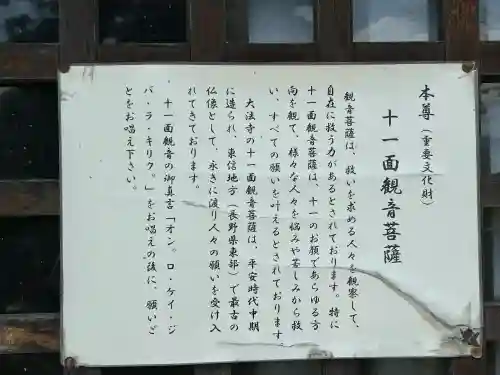 本尊（重要文化財）
十一面観音菩薩
観音菩薩は、救いを求める人々を観察して、
自在に救う力があるとされております。特に
十一面観音菩薩は、十一のお顔であらゆる方
向を観て、様々な人々を悩みや苦しみから救
い、すべての願いを叶えるとされております。
大法寺の十一面観音菩薩は、平安時代中期
に造られ、東信地方（長野県東部）で最古の
仏像として、永きに渡り人々の願いを受け入
れてきております。
十一面観音の御真言「オン。ロ・ケイ・ジ
バ・ラ・キリク。」をお唱えの後に、願いご
とをお唱え下さい。